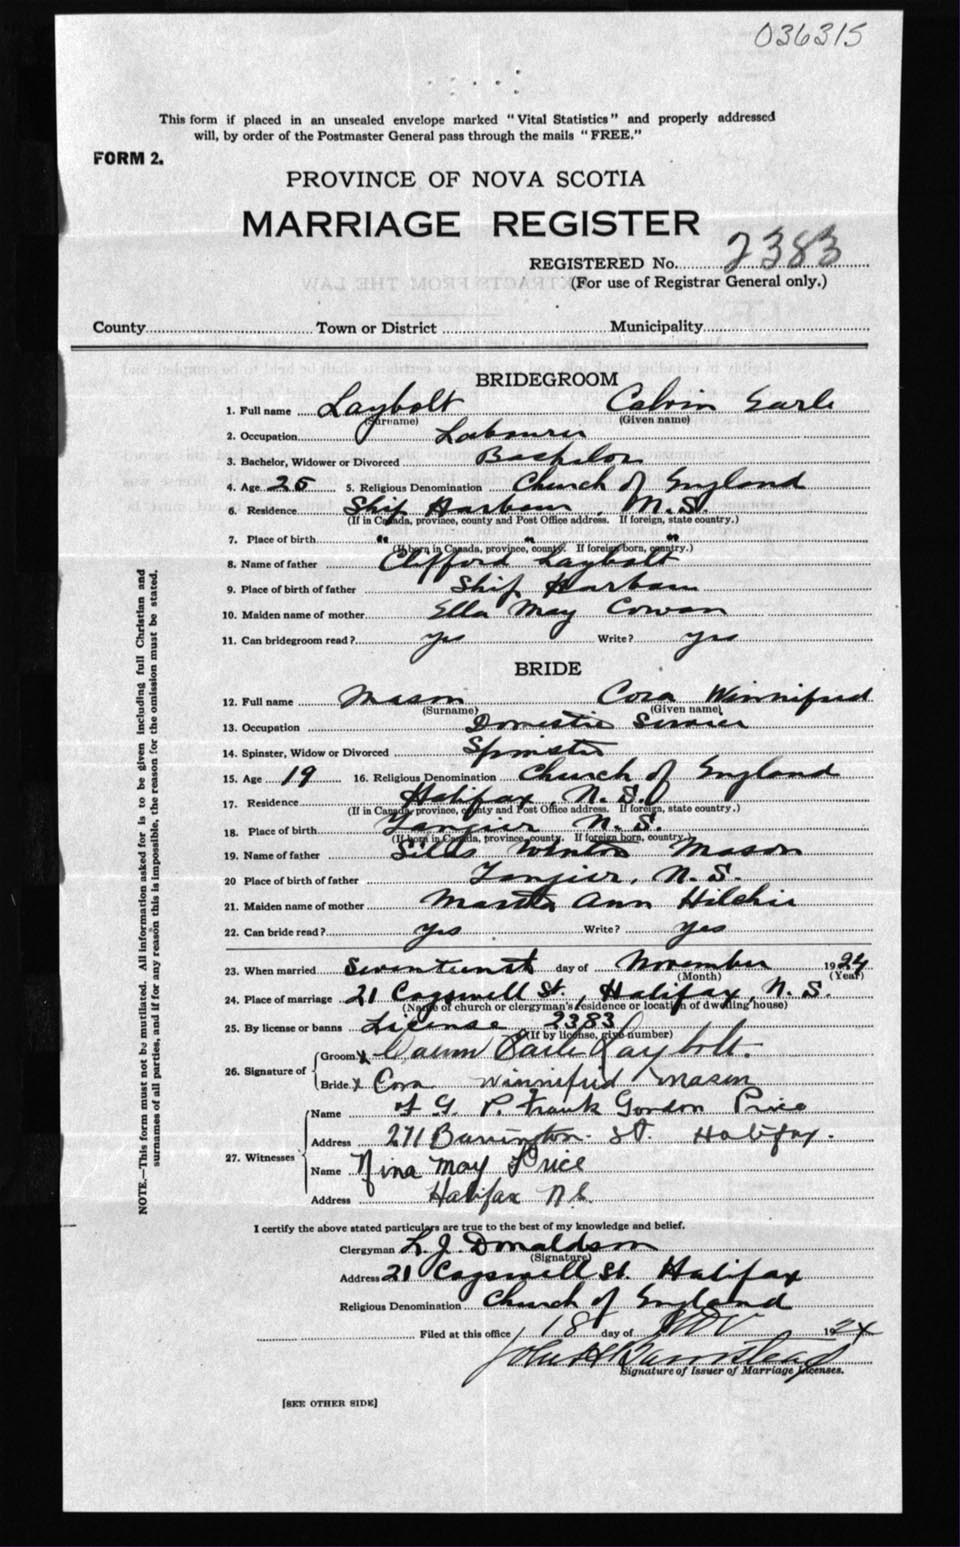 036315
This form if placed in an unsealed envelope marked "Vital Statistics" and properly addressed
will, by order of the Postmaster General pass through the mails "FREE."
FORM 2.
PROVINCE OF NOVA SCOTIA
MARRIAGE REGISTER
REGISTERED No. 2383
(For use of Registrar General only.)
County Town or District Municipality
BRIDEGROOM
1. Full name Laybolt Calvin Earle
(Surname) (Given name)
2. Occupation Labourer
3. Bachelor, Widower or Divorced Bachelor
4. Age 25 5. Religious Denomination Church of England
6. Residence Ship Harbour, N.S.
(If in Canada, province, county and Post Office address. If foreign, state country.)
7. Place of birth " " "
(If born in Canada, province, county. If foreign born, country.)
8. Name of father Clifford Laybolt
9. Place of birth of father Ship Harbour
10. Maiden name of mother Ella May Cowan
11. Can bridegroom read? yes Write? yes
BRIDE
12. Full name Mason Cora Winnifred
(Surname) (Given name)
13. Occupation Domestic Servier
14. Spinster, Widow or Divorced Spinster
15. Age 19 16. Religious Denomination Church of England
17. Residence Halifax, N.S.
(If in Canada, province, county and Post Office address. If foreign, state country.)
18. Place of birth Tangier N.S.
(If born in Canada, province, county. If foreign born, country.)
19. Name of father Silas Winton Mason
20 Place of birth of father Tangier, N.S.
21. Maiden name of mother Martha Ann Hilchie
22. Can bride read? yes Write? yes
23. When married Seventeenth day of November 1924
(Month) (Year)
24. Place of marriage 21 Cogswell St., Halifax, N.S.
(Name of church or clergyman's residence or location of dwelling house)
25. By license or banns License 2383
(If by license, give number)
26. Signature of
Groom x Calvin Earle Laybolt.
Bride x Cora Winnifred Mason
27. Witnesses
Name F G P. Frank Gordon Price
Address 271 Barrington St. Halifax.
Name Nina May Price
Address Halifax N.S.
I certify the above stated particulars are true to the best of my knowledge and belief.
Clergyman L. J. Donaldson
(Signature)
Address 21 Cogswell St. Halifax
Religious Denomination Church of England
Filed at this office 18 day of Nov 1924
John H Barnstead
Signature of Issuer of Marriage Licenses.
[SEE OTHER SIDE]
NOTE.—This form must not be mutilated. All information asked for is to be given including full Christian and
surnames of all parties, and if for any reason this is impossible, the reason for the omission must be stated.